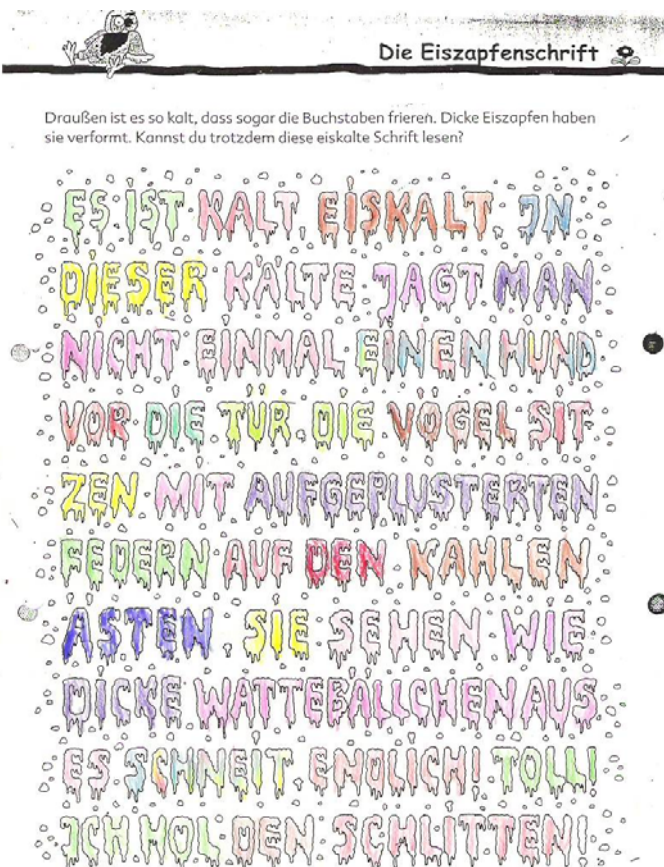 Die Eiszapfenschrift
Draußen ist es so kalt, dass sogar die Buchstaben frieren. Dicke Eiszapfen haben
sie verformt. Kannst du trotzdem diese eiskalte Schrift lesen?
ES IST KALT, EISKALT. IN
DIESER KÄLTE JAGT MAN
NICHT EINMAL EINEN HUND
VOR DIE TÜR. DIE VÖGEL SIT-
ZEN MIT AUFGEPLUSTERTEN
FEDERN AUF DEN KAHLEN
ÄSTEN. SIE SEHEN WIE
DICKE WATTEBÄLLCHEN AUS
ES SCHNEIT ENDLICH! TOLL!
ICH HOL DEN SCHLITTEN!